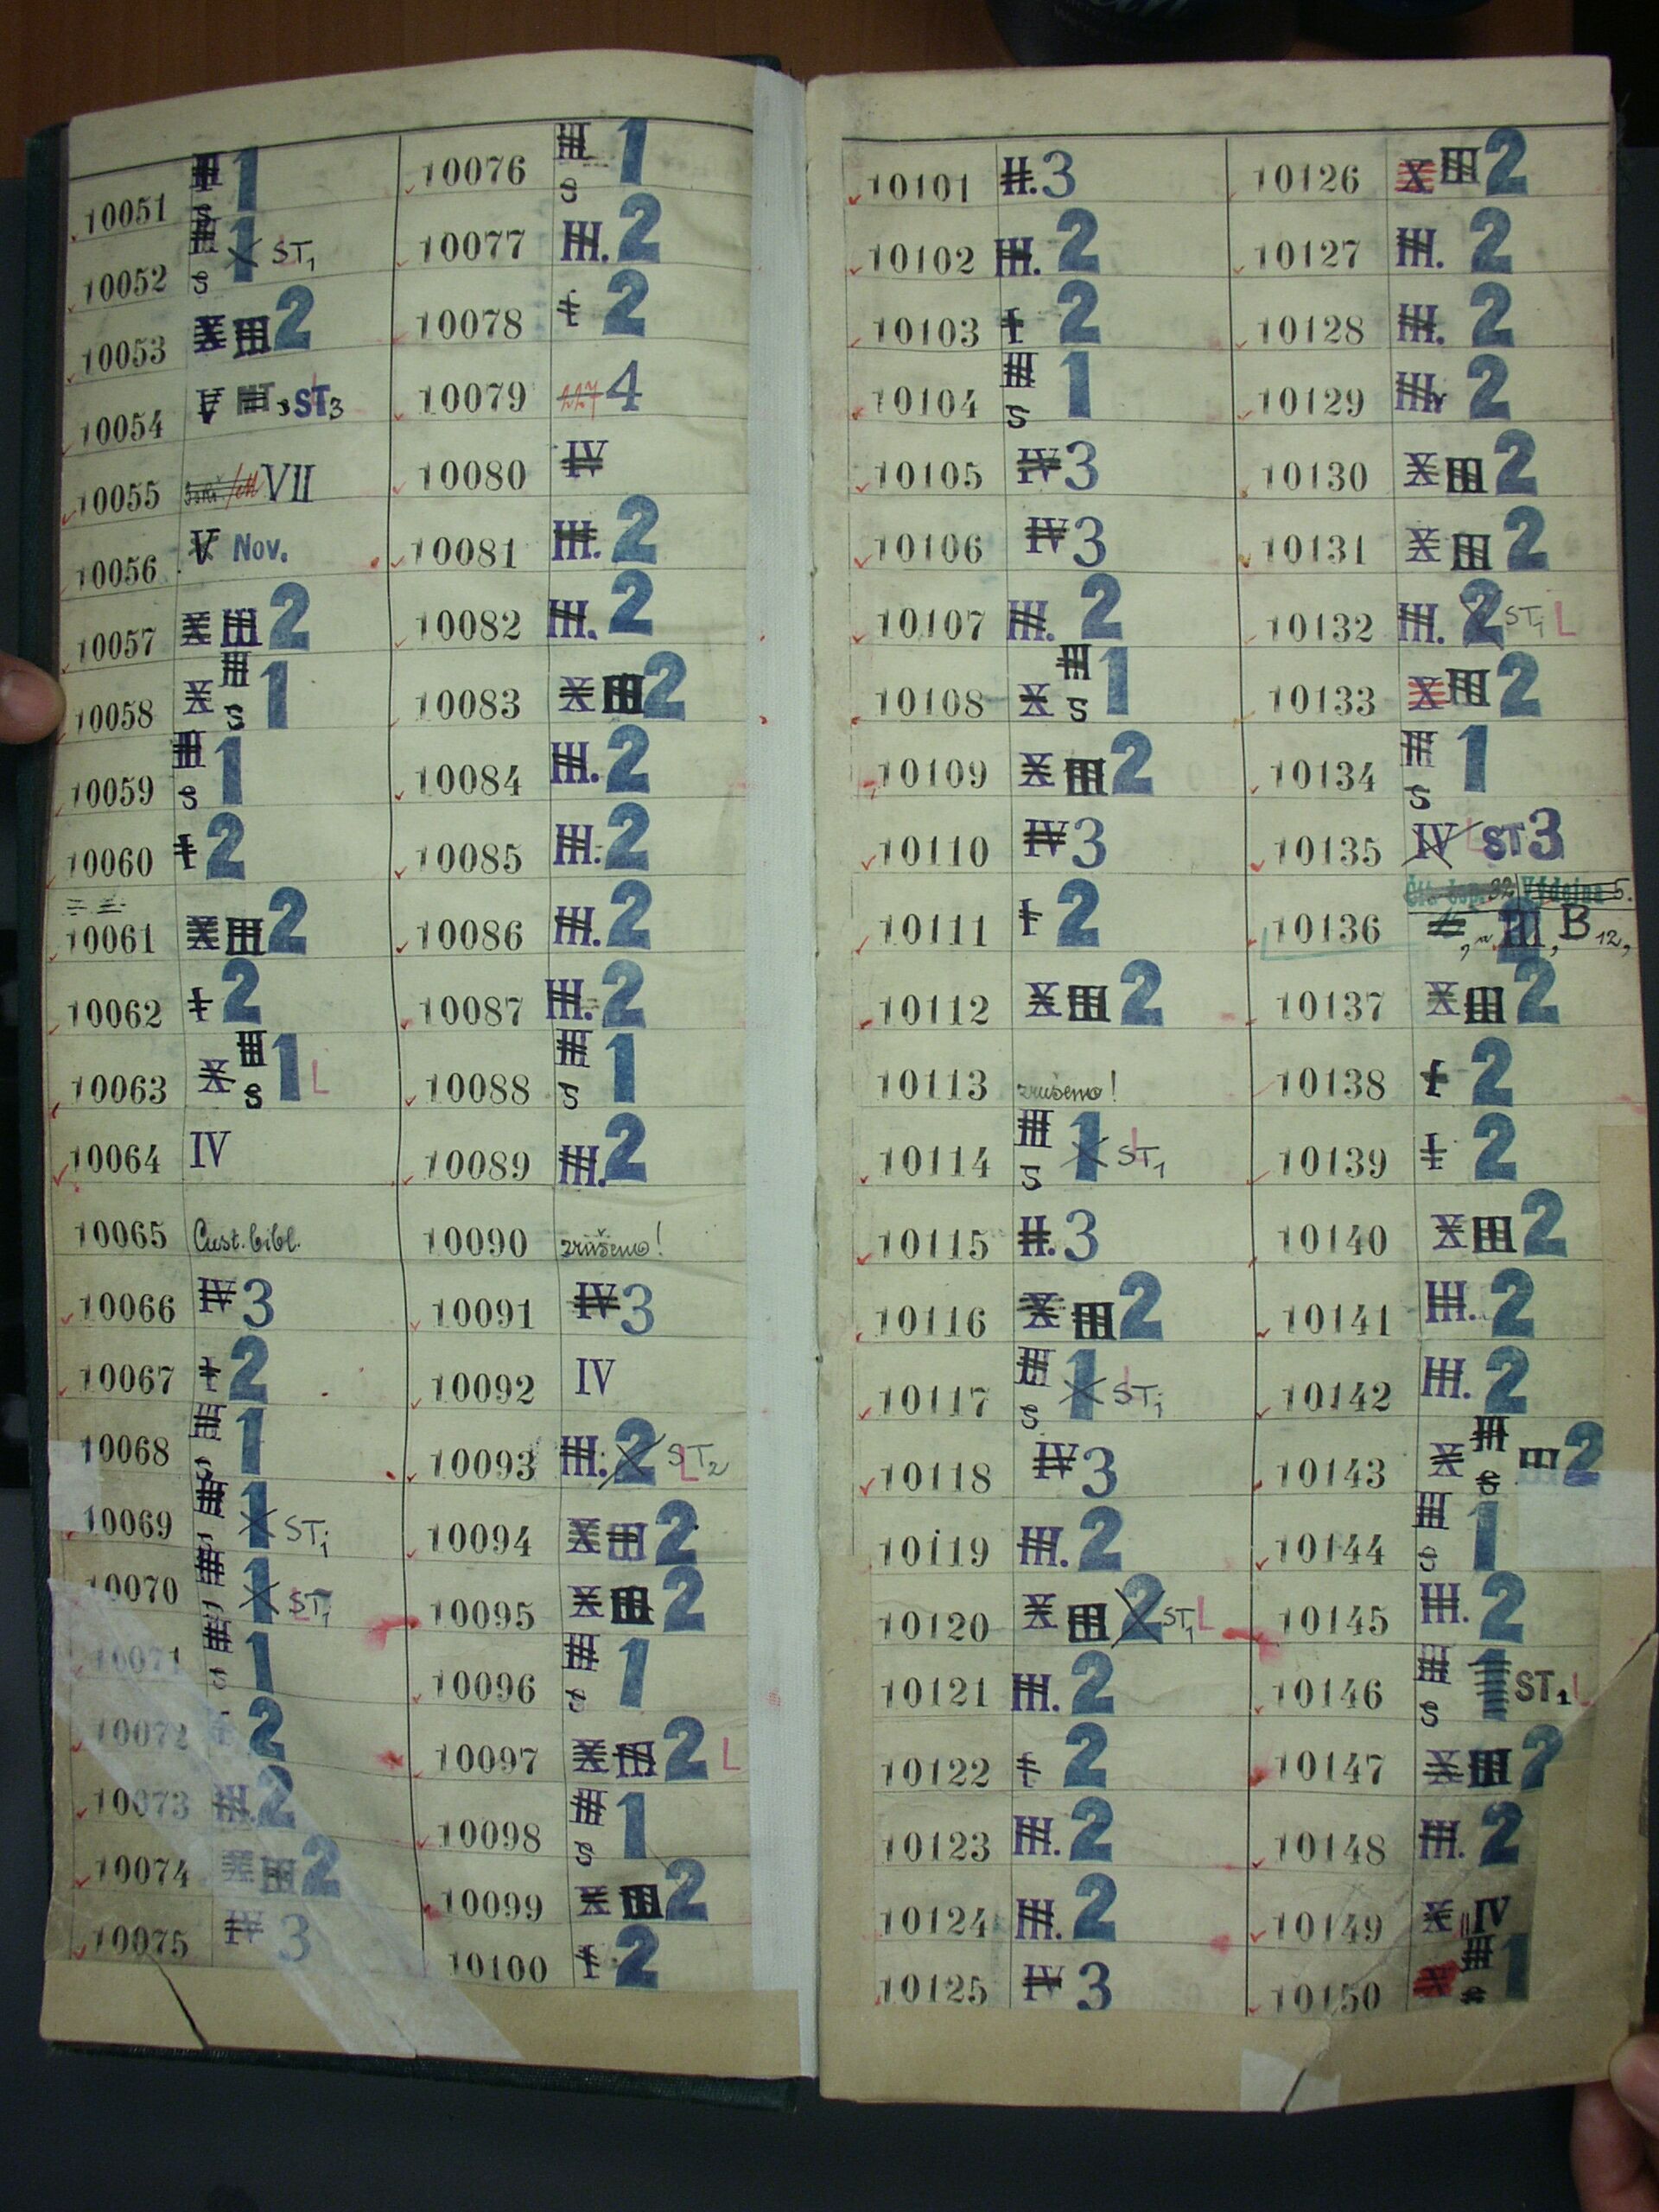 10051 III S 1
10052 III S 1 ST1
10053 X III 2
10054 V ST3
10055 VII
10056 V Nov.
10057 X III 2
10058 X III S 1
10059 III S 1
10060 I 2
10061 X III 2
10062 I 2
10063 X III S 1 L
10064 IV
10065 Cust. bibl.
10066 IV 3
10067 I 2
10068 III S 1
10069 III S 1 ST1
10070 III 1 ST1 L
10071 III S 1
10072 2
10073 III. 2
10074 X III 2
10075 IV 3
10076 III S 1
10077 III. 2
10078 I 2
10079 4
10080 IV
10081 III. 2
10082 III. 2
10083 X III 2
10084 III. 2
10085 III. 2
10086 III. 2
10087 III. 2
10088 III S 1
10089 III. 2
10090 zrušeno!
10091 IV 3
10092 IV
10093 III. 2 ST2 L
10094 X III 2
10095 X III 2
10096 III S 1
10097 X III 2 L
10098 III S 1
10099 X III 2
10100 I 2
10101 II. 3
10102 III. 2
10103 I 2
10104 III S 1
10105 IV 3
10106 IV 3
10107 III. 2
10108 X III S 1
10109 X III 2
10110 IV 3
10111 I 2
10112 X III 2
10113 zrušeno!
10114 III S 1 L ST1
10115 II. 3
10116 X III 2
10117 III S 1 L ST1
10118 IV 3
10119 III. 2
10120 X III 2 ST1 L
10121 III. 2
10122 I 2
10123 III. 2
10124 III. 2
10125 IV 3
10126 X III 2
10127 III. 2
10128 III. 2
10129 III. 2
10130 X III 2
10131 X III 2
10132 III. 2 ST1 L
10133 X III 2
10134 III S 1
10135 IV L ST3
10136 Výdejna 5. III, B12,
10137 X III 2
10138 I 2
10139 I 2
10140 X III 2
10141 III. 2
10142 III. 2
10143 X III S III 2
10144 III S 1
10145 III. 2
10146 III S 1 ST1 L
10147 X III 2
10148 III. 2
10149 X IV
10150 X III S 1